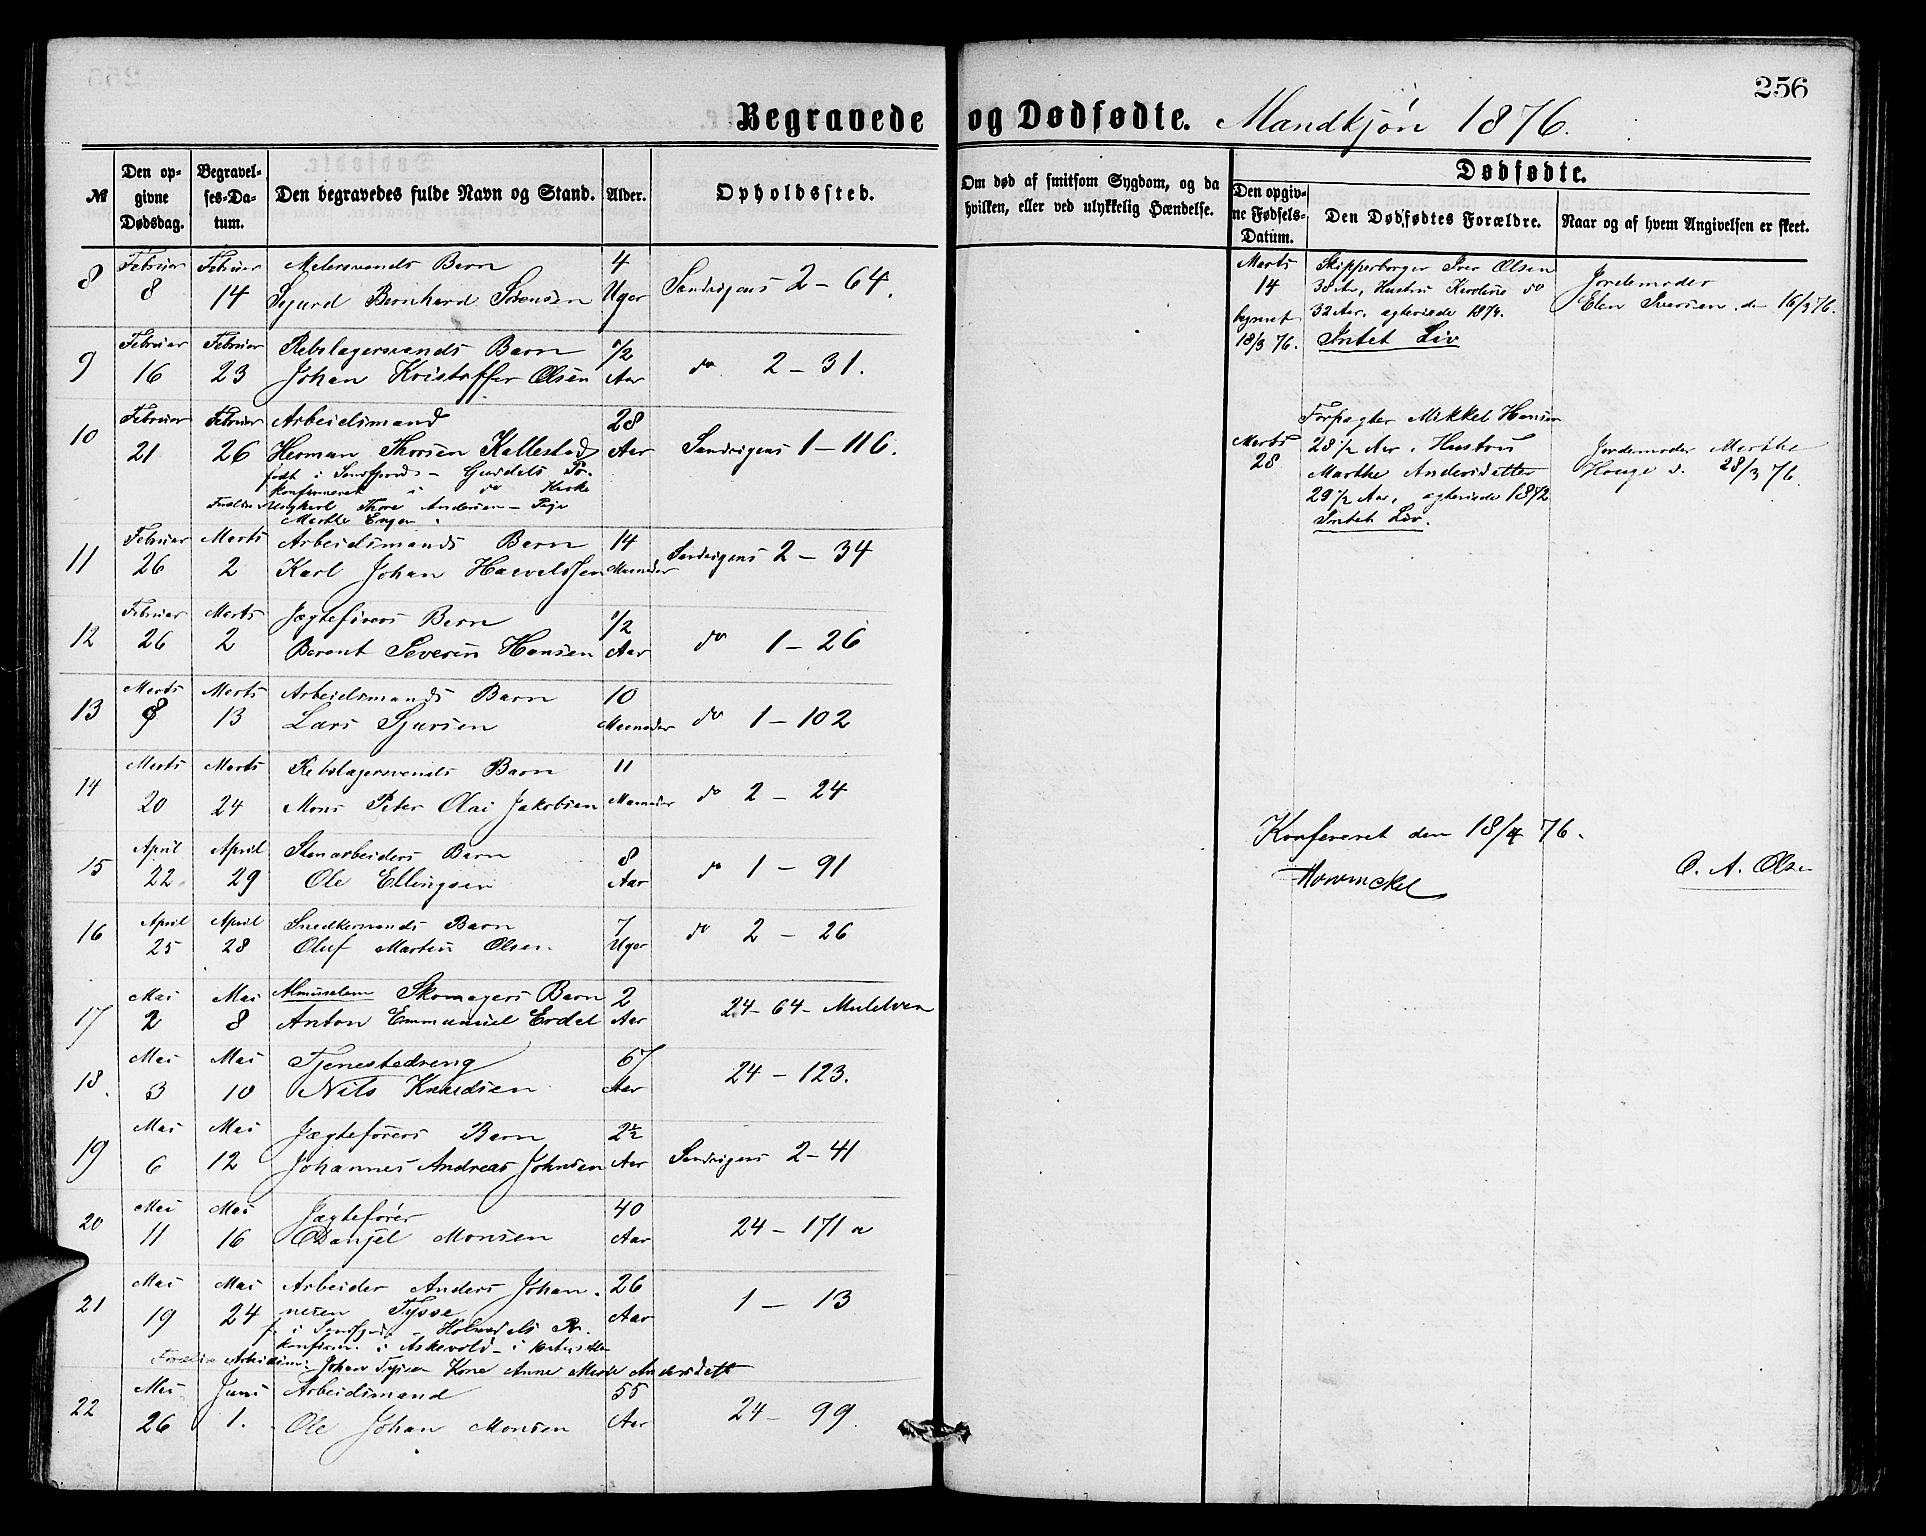 256
Begravede og Dødfødte. Mandkjøn 1876.
№
Den opgivne Dødsdag.
Begravelses-Datum.
Den begravedes fulde Navn og Stand.
Alder.
Opholdssted.
Om død af smitsom Sygdom, og da
hvilken, eller ved ulykkelig Hændelse.
Dødfødte.
Den opgivne Fødsels-Datum.
Den Dødfødtes Forældre.
Naar og af hvem Angivelsen er skeet.
8 Februar 8 Februar 14 Malersvends Barn 4 Uger Sandvigens 2 – 64.
Sjurd Bernhard Sörensen
9 Februar 16 Februar 23 Rebslagersvends Barn 1/2 Aar do 2 – 31.
Johan Kristoffer Olsen
10 Februar 21 Februar 26 Arbeidsmand 28 Aar Sandvigens 1 – 116.
Herman Thorsen Kallestad
født i Søndfjord – Guddals Pr.
konfirmeret i do Kirke
Thore Andersen – Pige
Marthe
11 Februar 26 Marts 2 Arbeidsmands Barn 14 Maaneder Sandvigens 2 – 34
Karl Johan Haveldsen
12 Februar 26 Marts 2 Jægteförers Barn 1/2 Aar do 1 – 26
Berent Severin Hansen
13 Marts 8 Marts 13 Arbeidsmands Barn 10 Maaneder do 1 – 102
Lars Sjursen
14 Marts 20 Marts 24 Rebslagersvends Barn 11 Maaneder do 2 – 24
Mons Peter Olai Jakobsen
15 April 22 April 29 Stenarbeiders Barn 8 Aar do 1 – 91
Ole Ellingsen
16 April 25 April 28 Snedkersvends Barn 7 Uger do 2 – 26
Oluf Martin Olsen.
17 Mai 2 Mai 8 Almisselem Skomagers Barn 2 Aar 24 – 64 – Mulelven
Anton Emmanuel Erdal
18. Mai 3 Mai 10 Tjenestedreng 67 Aar 24 – 123.
Nils Knudsen
19 Mai 6 Mai 12 Jægteförers Barn 2½ Aar Sandvigens 2 – 41
Johannes Andreas Johnsen
20 Mai 11 Mai 16 Jægteförer 40 Aar 24 – 171 a
Danjel Monsen
21 Mai 19 Mai 24 Arbeider Anders Johan- 26 Aar 1 – 13
nesen Tysse
f. i Søndfjord, Holmedals Pr.
konfirm. i Askevold – i
Johan Tysse Kone Anne Marie Andersdatt
22 Mai 26 Juni 1. Arbeidsmand 55 Aar 24 – 99.
Ole Johan Monsen
Marts 14 Skipperborger Iver Olsen
38 Aar, Hustru Karoline do
32 Aar. egteviede 1874.
Intet Liv
18/3 76.
Jordemoder
Elen Iversen. den 16/3 76.
Marts 28 Forpagter Mikkel Hansen
28 1/2 Aar, Hustru
Marthe Andersdatter
29 1/2 Aar, egteviede 1872
Intet Liv.
Jordemoder Marthe
Hauge d. 28/3 76.
Konfereret den 18/4 76.
O. A. Olsen